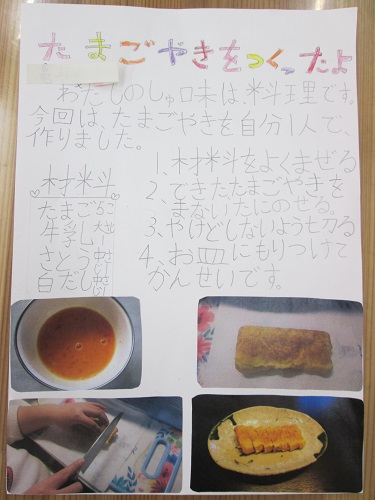 たまごやきをつくったよ
わたしのしゅ味は、料理です。
今回は、たまごやきを自分1人で、
作りました。
材料
たまご5こ
牛乳大
さとう
白だし
1、材料をよくまぜる
2、できたたまごやきを
まないたにのせる。
3、やけどしないよう切る
4、お皿にもりつけて
かんせいです。